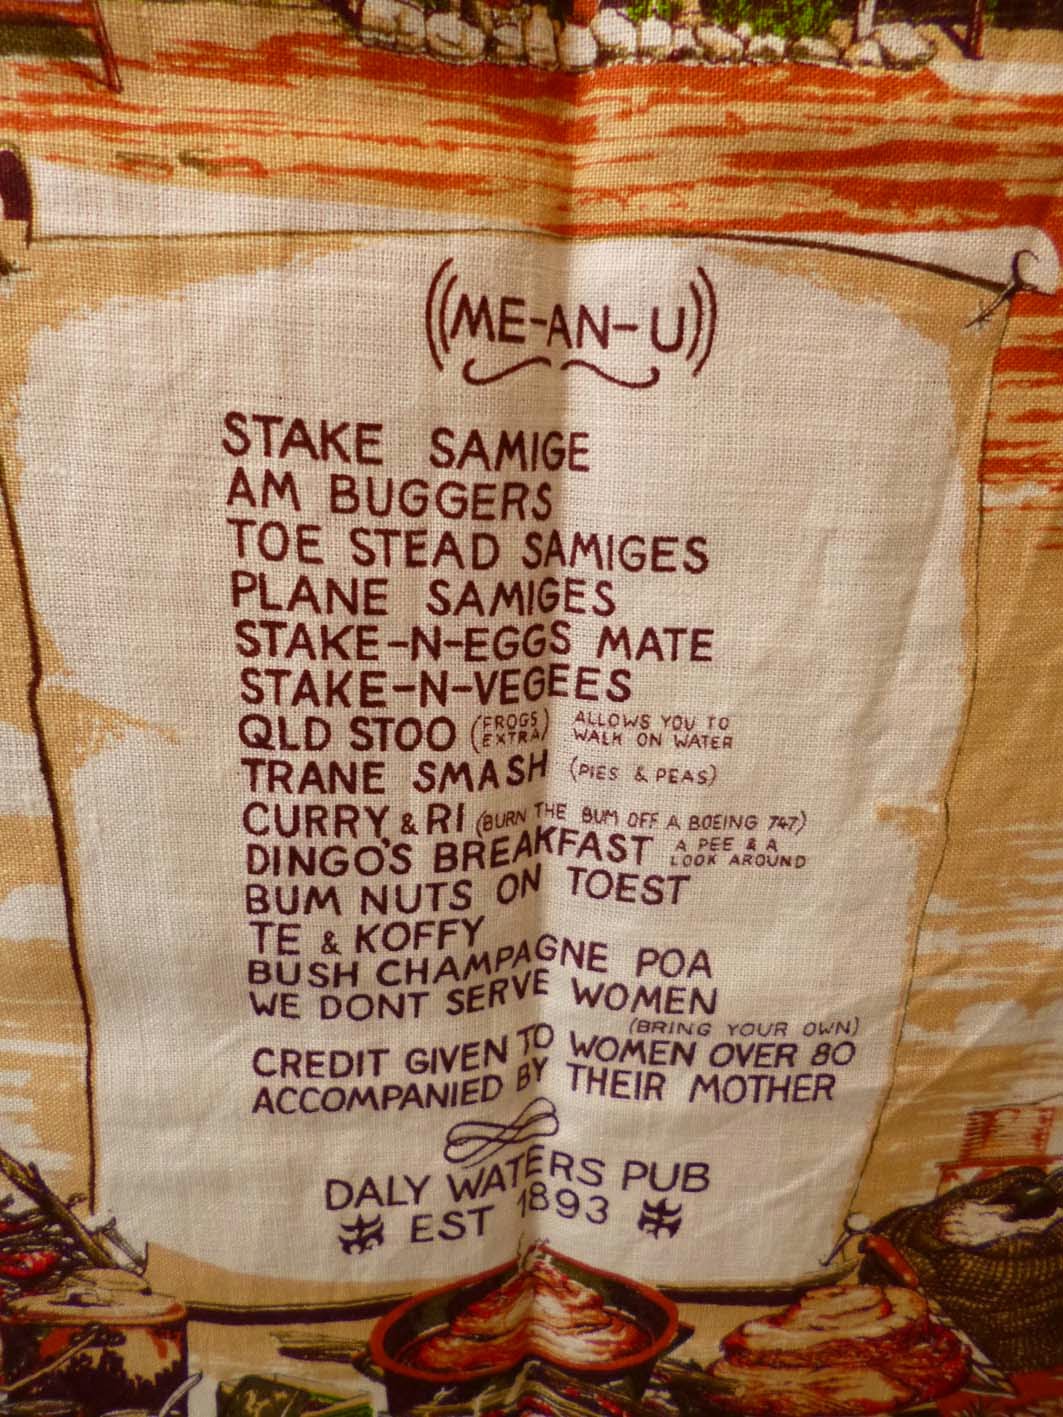 ((ME-AN-U))
STAKE SAMIGE
AM BUGGERS
TOE STEAD SAMIGES
PLANE SAMIGES
STAKE-N-EGGS MATE
STAKE-N-VEGEES
QLD STOO (FROGS EXTRA) ALLOWS YOU TO WALK ON WATER
TRANE SMASH (PIES & PEAS)
CURRY & RI (BURN THE BUM OFF A BOEING 747)
DINGO'S BREAKFAST A PEE & A LOOK AROUND
BUM NUTS ON TOEST
TE & KOFFY
BUSH CHAMPAGNE POA
WE DONT SERVE WOMEN
(BRING YOUR OWN)
CREDIT GIVEN TO WOMEN OVER 80
ACCOMPANIED BY THEIR MOTHER
DALY WATERS PUB
EST 1893